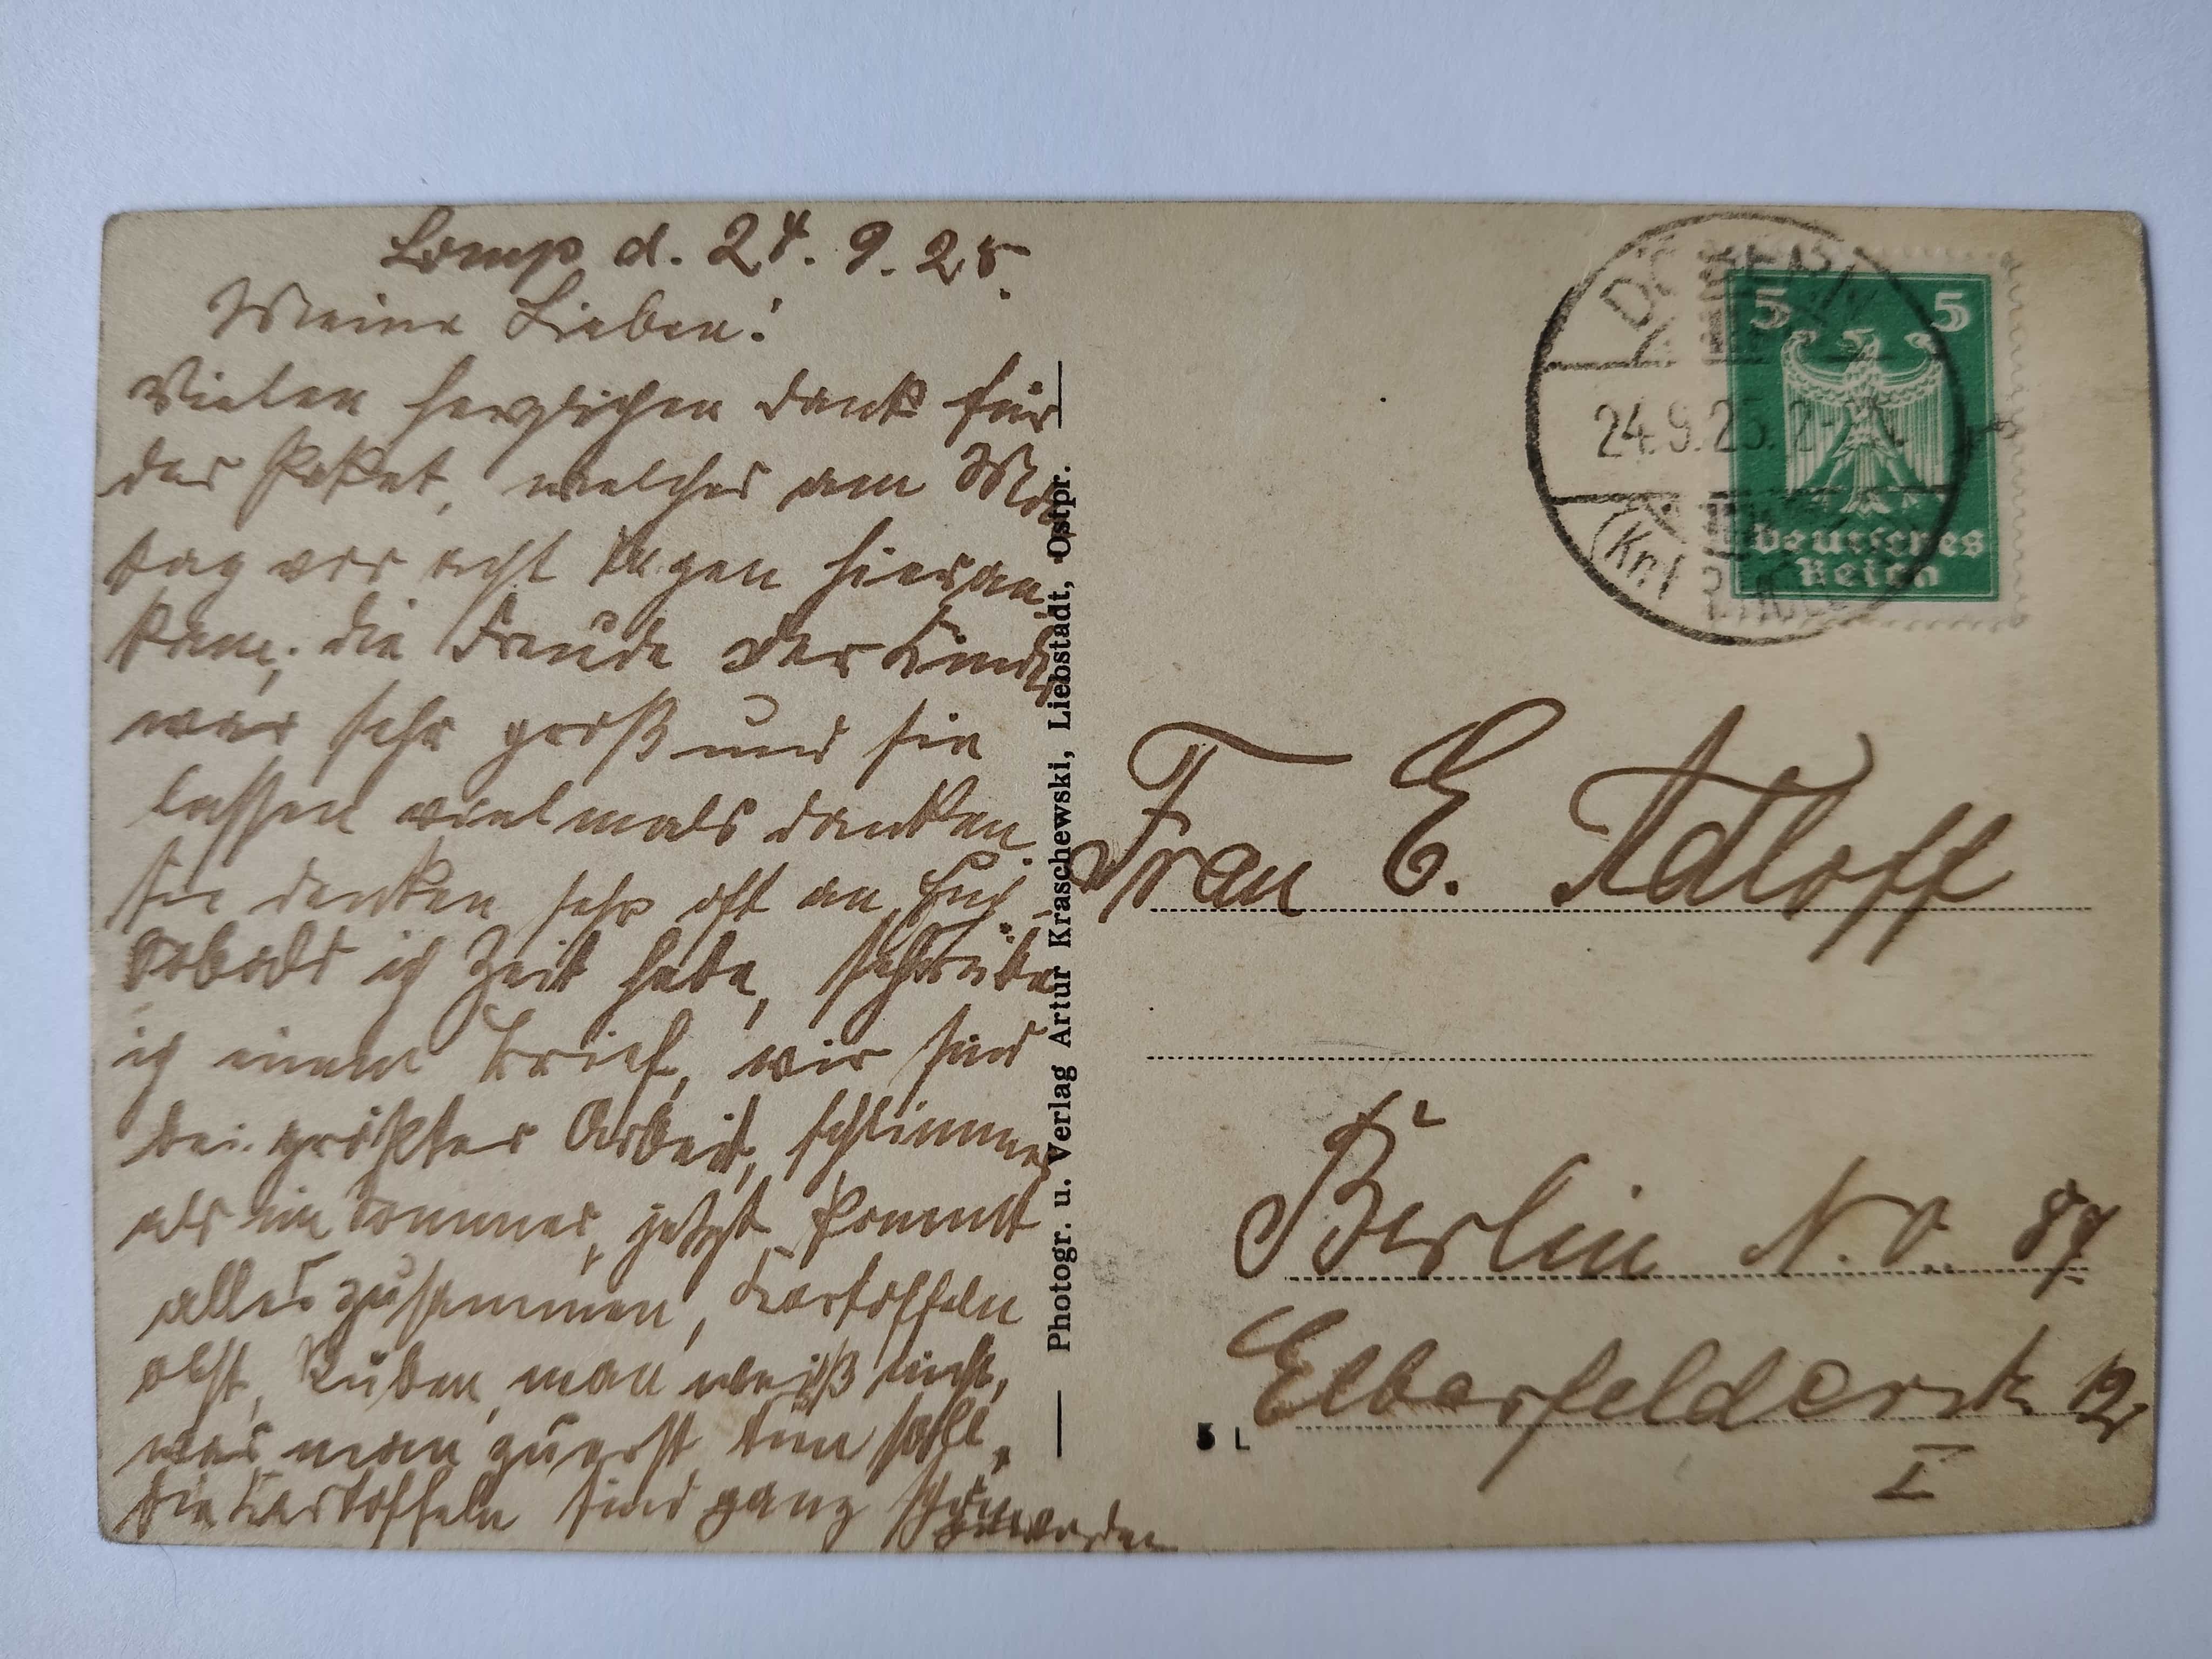 Lomp d. 24. 9. 25.
Meine Lieben!
Vielen herzlichen Dank für
das Paket, welches am Mon
tag vor acht Tagen hier an
kam, die Freude der Kinder
war sehr groß und sie
lassen vielmals danken.
Sie denken sehr oft an Euch.
Sobald ich Zeit habe, schreibe
ich einen Brief, wir sind
bei größter Arbeit, schlimmer
als im Sommer, jetzt kommt
alles zusammen, Kartoffeln
obst, Rüben, man weiß nicht,
was man zuerst tun soll,
die Kartoffeln sind ganz schön
geworden
Photogr. u. Verlag Artur Kraschewski, Liebstadt, Ostpr.
24.9.25.
(Kr.
5 5
Deutsches
Reich
Frau E. Adloff
Berlin N.O. 87
Elberfelderstr. 12
I
5 L